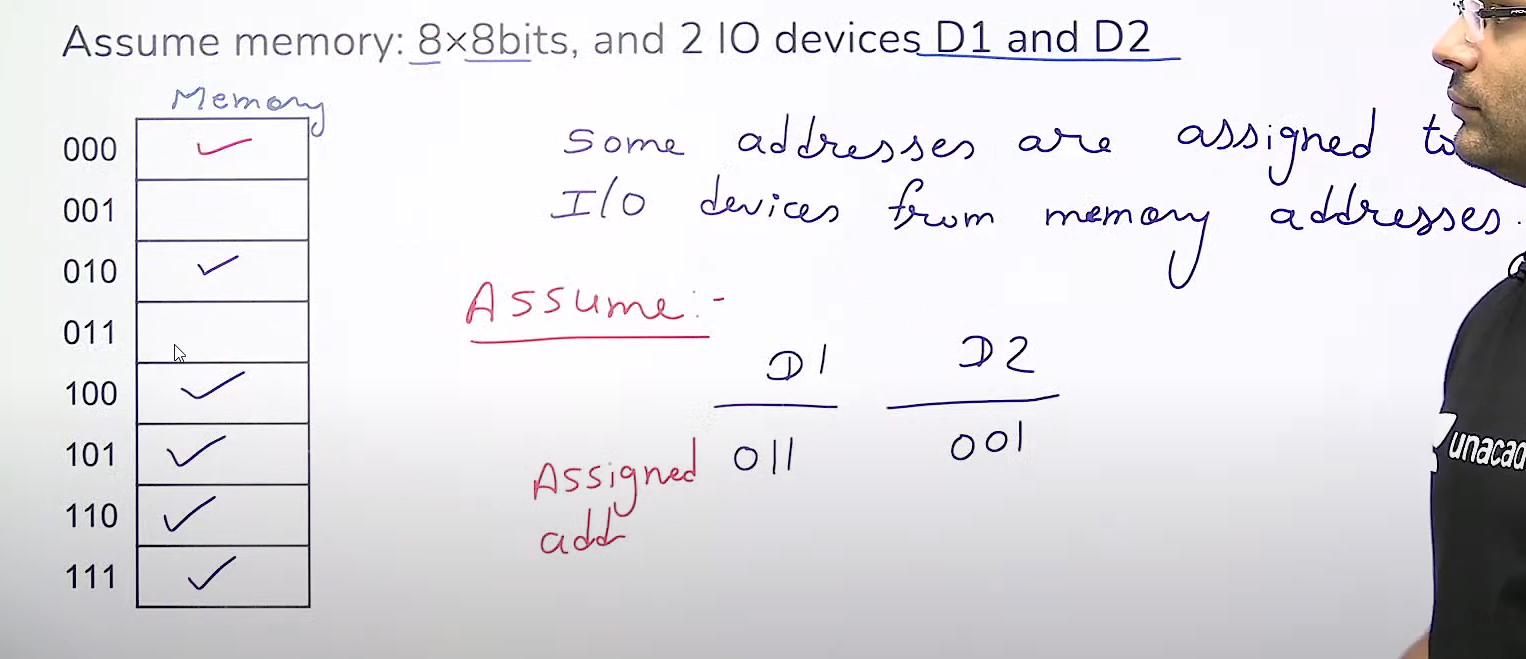 Assume memory: 8×8bits, and 2 IO devices D1 and D2
Memory
000
001
010
011
100
101
110
111
Some addresses are assigned to
I/O devices from memory addresses.
Assume:-
D1 D2
Assigned 011 001
add
unacad